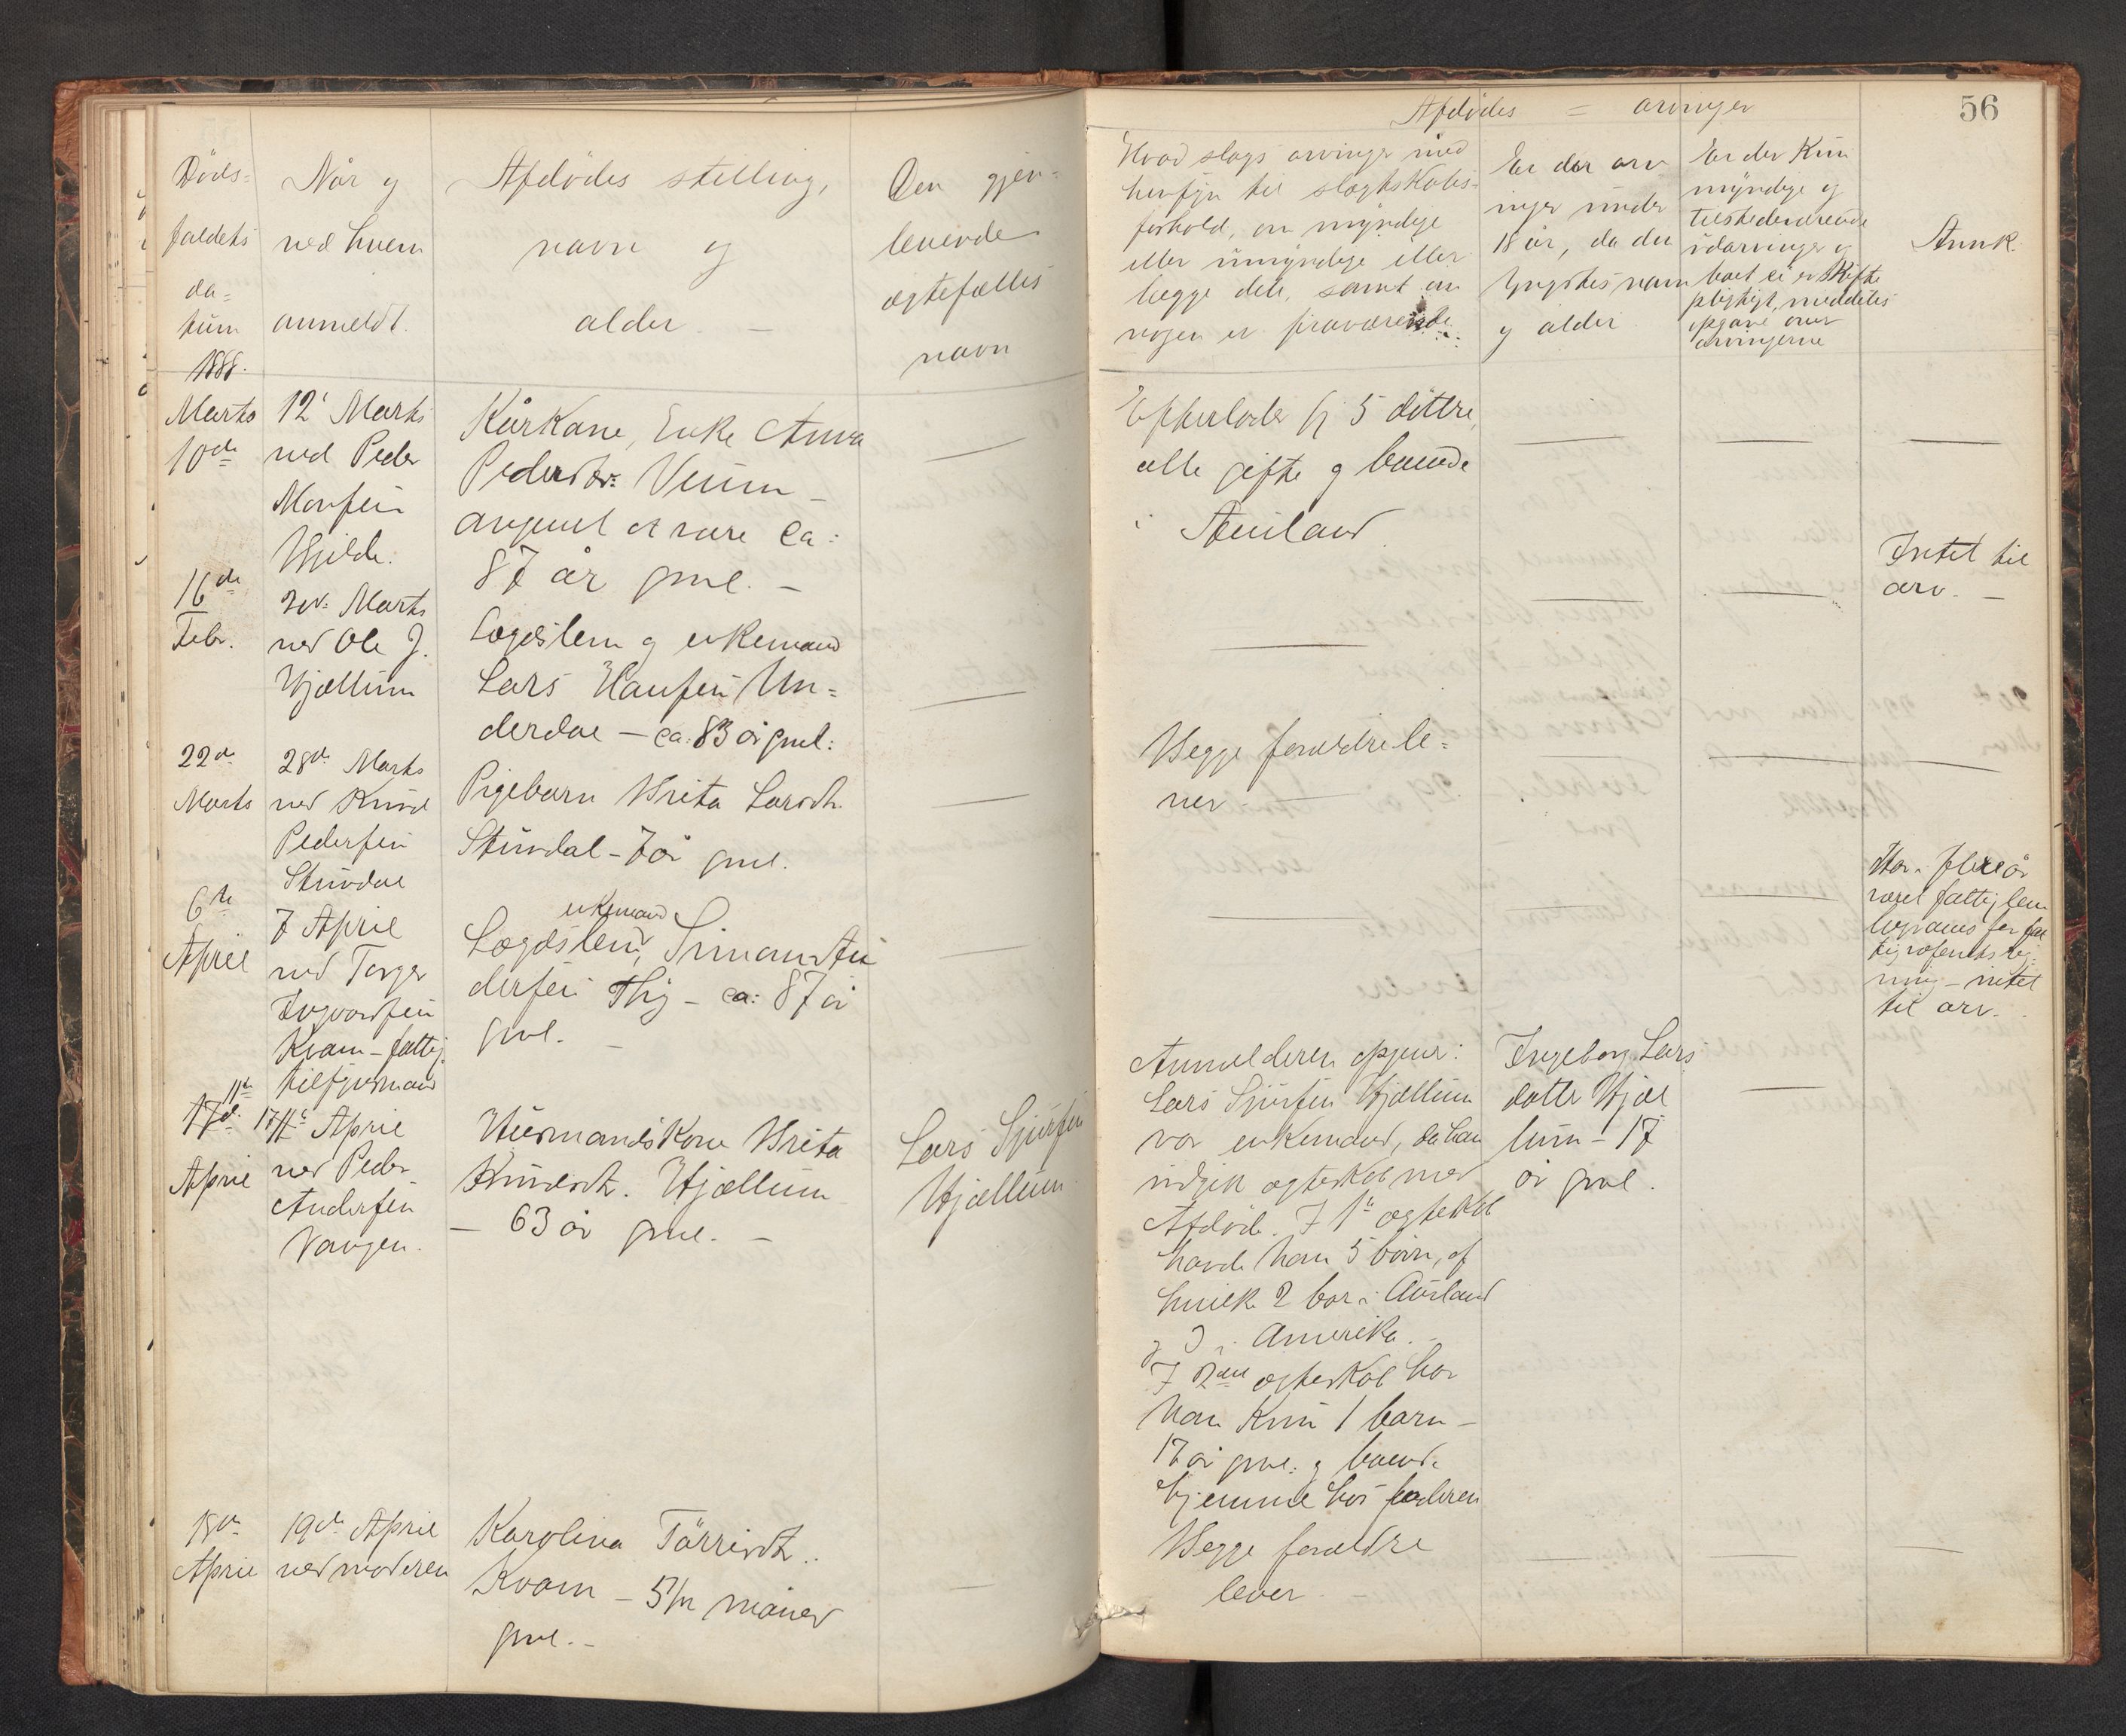 Döds=
faldets
da=
tum
1888.
Når og
ved hvem
anmeldt.
Afdödes stilling,
navn og
alder. —
Den gjen=
levende
ægtefælles
navn
Marts
10de
12' Marts
ved Peder
Monsen
Hjilde.
Kårkone, Enke Anna
Pedersdtr: Veum –
angivet at være ca:
87 år gml. –
—
16de
Febr.
ved Ole J.
Hjællum
Lægdslem og enkemand
Lars Hansen Un=
derdal – ca: 83 år gml:
—
22de
Marts
28de Marts
ved Knud
Pedersen
Stundal
Pigebarn Brita Larsdtr.
Stundal – 7 år gml.
—
6te
April
7 April
ved Torger
Ingvardsen
Kvam – fattig
tilsynsmand
enkemand
Lægdslem, Simon An
dersen Thig – ca: 87 år
gml. –
—
11te
17de
April
17de April
ved Peder
Andersen
Vangen.
Husmandskone Brita
Knudsdtr. Hjællum
– 63 år gml. –
Lars Sjursen
Hjællum
18de
April
19de April
ved moderen
Karolina Törrisdtr.
Kvam – 5½ måned
gml. –
—
56
Afdödes = arvinger
Hvad slags arvinger med
hensyn til slægtskabs=
forhold, om myndige
eller umyndige eller
begge dele, samt om
nogen er fraværende
Er der arv
inger under
18 år, da den
yngstes navn
og alder
Er der kun
myndige og
tilstedeværende
udarvinger og
boet ei er skifte
pligtigt, meddeles
opgave over
arvingerne
Anmk.
Efterlader sig 5 döttre,
alle gifte og boende
i Aurland.
—
—
—
—
—
—
Intet til
arv. –
Begge forældre le=
ver —
—
—
—
—
—
—
Har i flere år
været fattiglem
til arv.
Anmelderen opgiver:
Lars Sjursen Hjællum
var enkemand, da han
indgik ægteskab med
Afdöde. I 1ste ægteskab
havde han 5 börn, af
hvilke 2 bor i Aurland
og 3 i Amerika. –
I 2det ægteskab har
han kun 1 barn –
17 år gml. og boende
hjemme hos faderen
Ingeborg Lars
datter Hjæl
lum – 17
år gml.
—
Begge forældre
lever –
—
—
—